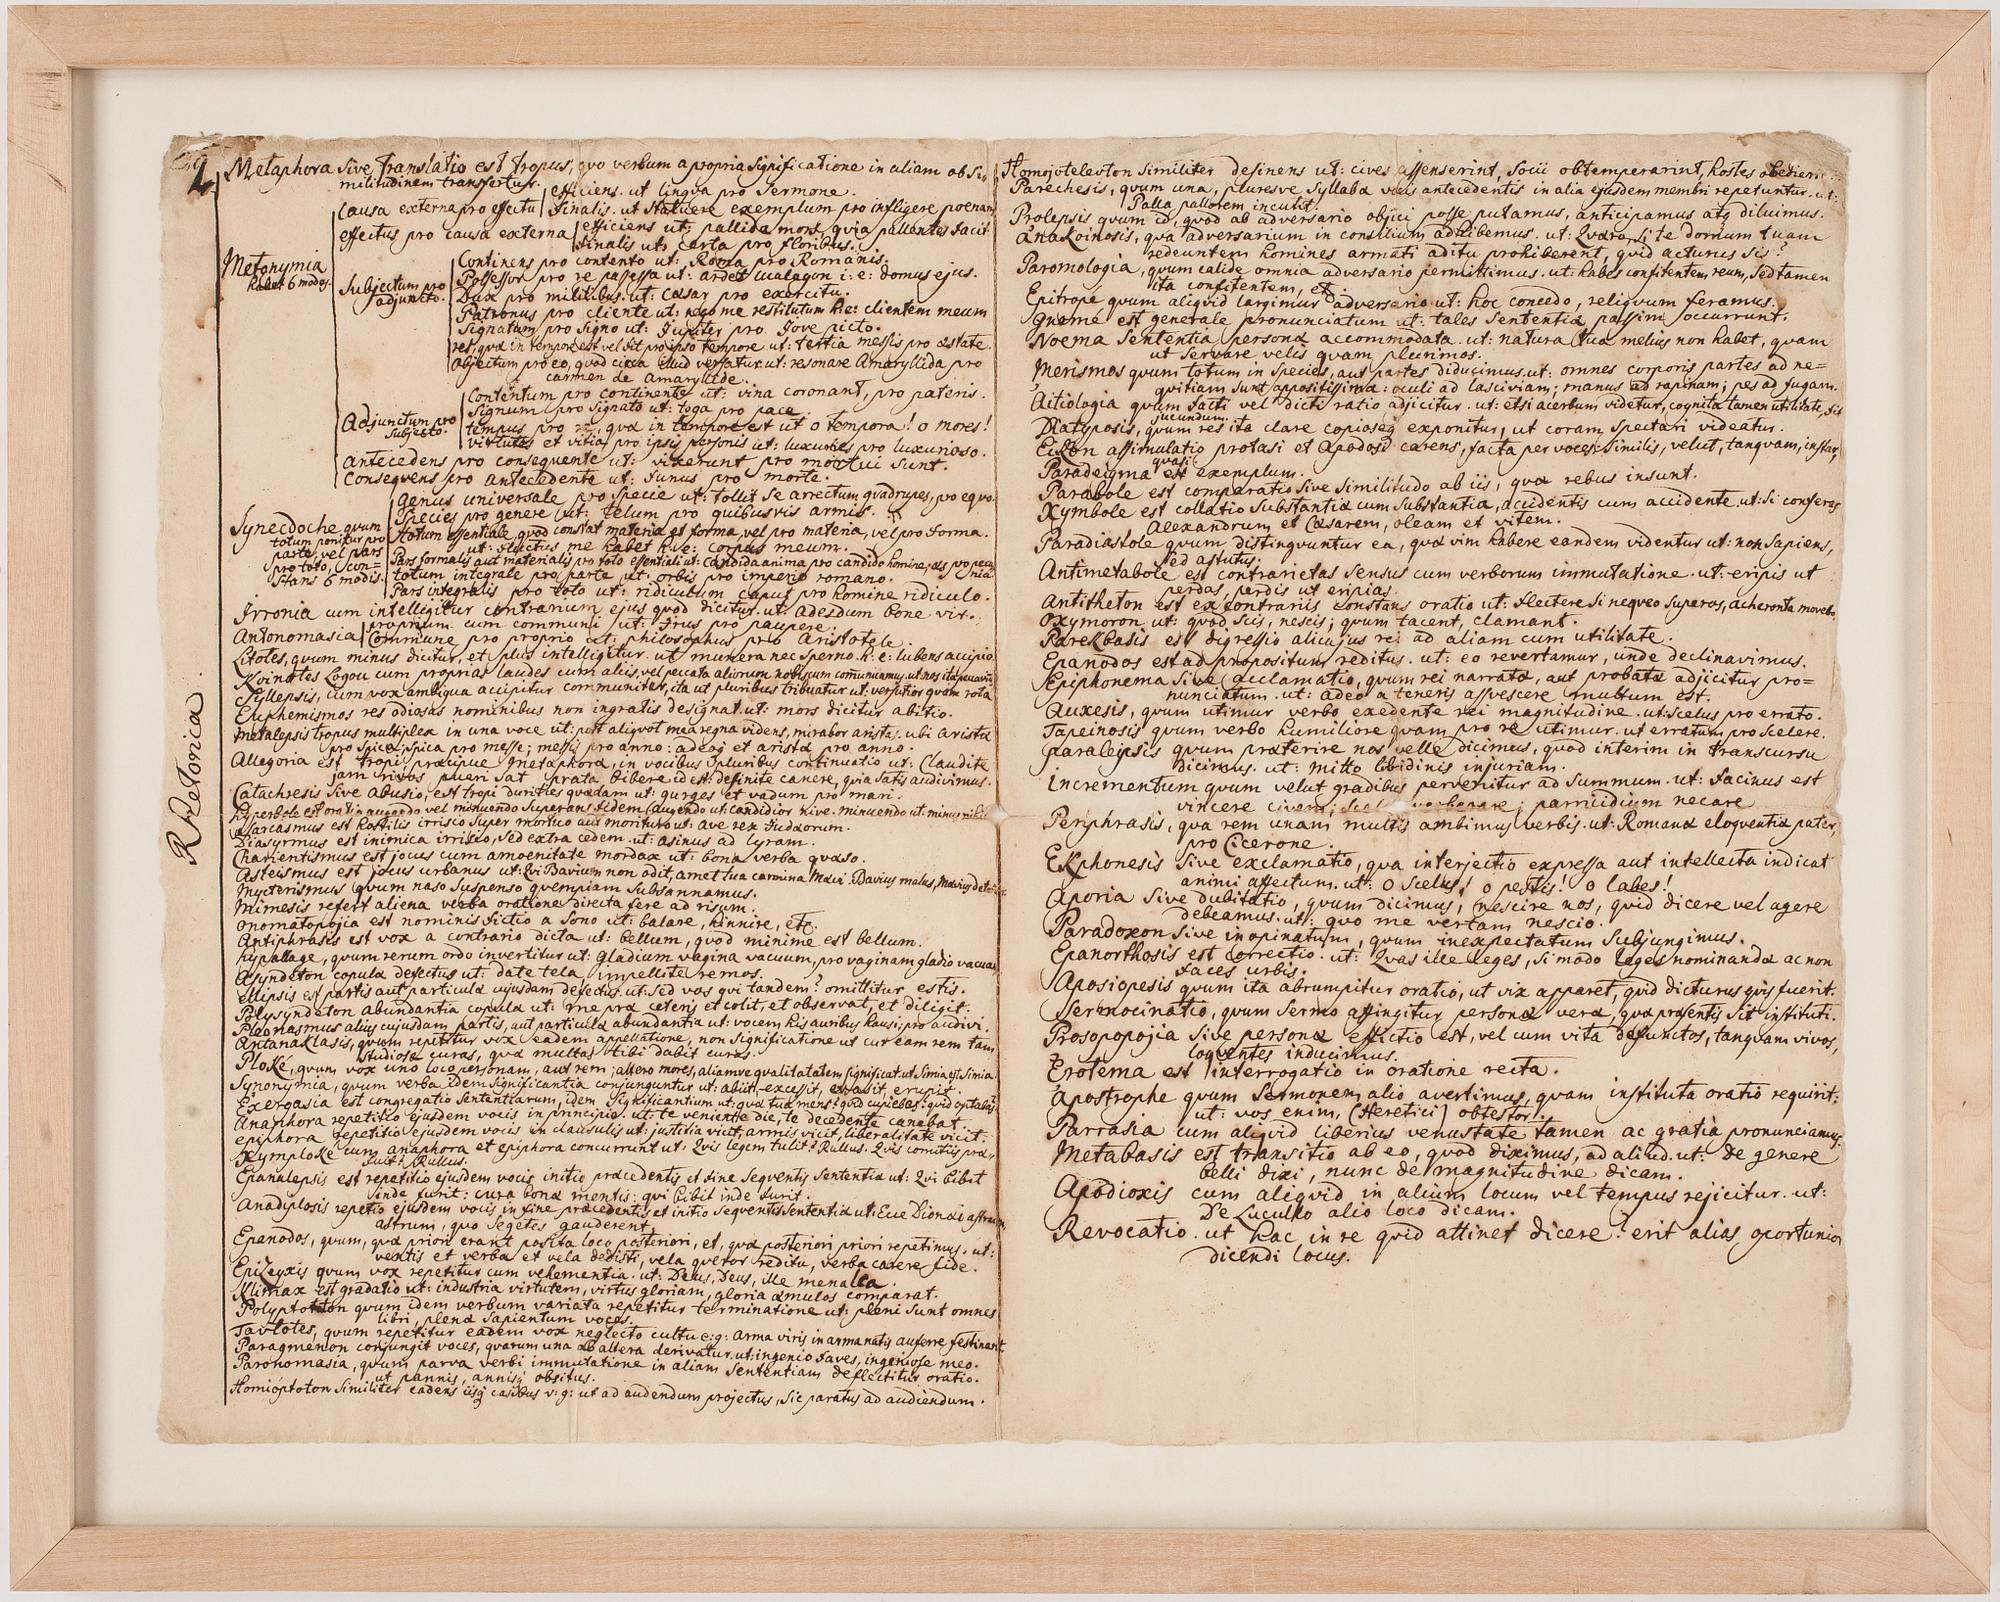 Rhetorica.
Metaphora sive Translatio est tropus, quo verbum a propria significatione in aliam ob si-
militudinem transfertur.
Metonymia
habet 6 modos.
Causa externa pro effectu
efficiens. ut lingva pro Sermone.
finalis. ut statuere exemplum pro infligere poenam
effectus pro causa externa
efficiens ut: pallida mors, quia pallentes facit
finalis ut: certa pro floribus.
Subjectum pro
adjuncto.
Continens pro contento ut: Roma pro Romanis.
Possessor pro re possessa ut: ardet ucalagon i: e: domus ejus.
Dux pro militibus. ut: Cæsar pro exercitu.
Patronus pro cliente ut: nego me restitutum h:e: clientem meum
Signatum pro signo ut: Jupiter pro Jove picto.
res, quæ in tempore est vel fit pro ipso tempore ut: tertia messis pro æstate
objectum pro eo, quod circa illud versatur. ut: resonare Amaryllida pro
carmen de Amaryllide.
Adjunctum pro
Subjecto.
Contentum pro continente ut: vina coronant, pro pateris.
Signum pro signato ut: toga pro pace
tempus pro re, quæ in tempore est ut o tempora! o mores!
virtutes et vitia pro ipsis personis ut: luxuries pro luxurioso.
Antecedens pro conseqvente ut: vixerunt pro mortui sunt.
Conseqvens pro antecedente ut: funus pro morte.
Synecdoche qvum
totum ponitur pro
parte, vel pars
pro toto, con=
stans 6 modis.
Genus universale pro specie ut: tollit se arrectum qvadrupes, pro eqvo.
Species pro genere ut: telum pro quibusvis armis.
totum essentiale, qvod constat materia et forma, vel pro materia, vel pro forma.
ut: flectus me habet h: e: corpus meum.
Pars formalis aut materialis pro toto essentiali ut: candida anima pro candido homine, æs pro pecu
nia
totum integrale pro parte ut: orbis pro imperio romano.
Pars integralis pro toto ut: ridiculum caput pro homine ridiculo.
Irronia cum intelligitur contrarium ejus qvod dicitur. ut: adesdum bone vir.
Antonomasia
proprium cum communi ut: Irus pro paupere.
Commune pro proprio ut: philosophus pro Aristotele.
Litotes, qvum minus dicitur, et plus intelligitur. ut munera nec sperno. h: e: lubens accipio.
Koinotes Logou cum proprias laudes cum aliis, vel peccata aliorum nobiscum comuniamus. ut nos
Syllepsis, cum vox ambigua accipitur communiter, ita ut pluribus tribuatur ut: versutior qvam rota
Euphemismos res odiosas nominibus non ingratis designat. ut: mors dicitur abitio.
Metalepsis tropus multiplex in una voce ut: post aliqvot mea regna videns, mirabor aristas. ubi arista
pro spica, spica pro messe; messis pro anno: adeoq et arista pro anno.
Allegoria est tropi præcipue Metaphoræ, in vocibus pluribus continuatio ut: Claudite
jam rivos pueri sat prata bibere id est: definite canere, quia satis audivimus.
Catachresis sive abusio, est tropi durities qvædam ut: gurges et vadum pro mari.
Hyperbole est oratio augendo vel minuendo superans fidem (augendo ut: candidior nive. minuendo ut: minus nihilo
Sarcasmus est hostilis irrisio super mortuo aut morituro ut: Ave rex Judæorum.
Diasyrmus est inimica irrisio, sed extra cedem. ut: asinus ad lyram.
Charientismus est jocus cum amoenitate mordax ut: bona verba qvæso.
Asteismus est jocus urbanus ut: Qvi Bavium non odit, amet tua carmina Mævi. Bavius malus, Mævius
Mycterismus qvum naso suspenso qvempiam subsannamus.
Mimesis refert aliena verba oratione directa fere ad risum.
Onomatopojia est nominis fictio a sono ut: balare, hinnire, etc.
Antiphrasis est vox a contrario dicta ut: bellum, qvod minime est bellum.
Hypallage, qvum rerum ordo invertitur ut: gladium vagina vacuum, pro vaginam gladio vacuam
Asyndeton copulæ defectus ut: date tela, impellite remos.
Ellipsis est partis aut particulæ cujusdam defectus. ut: sed vos qvi tandem? omittitur estis.
Polysyndeton abundantia copulæ ut: me præ ceteris et colit, et observat, et diligit.
Pleonasmus alius cujusdam partis, aut particulæ abundantia ut: vocem his auribus hausi; pro audivi.
Antanaklasis, qvum repetitur vox eadem appellatione, non significatione ut cur eam rem tam
studiose curas, qvæ multas tibi dabit curas.
Ploké, qvum vox uno loco personam, aut rem; altero mores, aliamve qvalitatem significat. ut Simia est simia.
Synonymia, qvum verba idem significantia conjunguntur ut: abiit, excessit, evasit, erupit.
Exergasia est congregatio sententiarum, idem significantium ut: qvæ tua mens? qvid cupiebas? qvid optabas?
Anaphora repetitio ejusdem vocis in principio. ut: te veniente die, te decedente canebat.
Epiphora repetitio ejusdem vocis in clausulis ut: justitia vicit, armis vicit, liberalitate vicit.
Symploké cum anaphora et epiphora concurrunt ut: Qvis legem tulit? Rullus. Qvis comitiis præ-
fuit? Rullus.
Epanalepsis est repetitio ejusdem vocis initio præcedentis et fine seqventis sententiæ ut: Qvi bibit
inde furit: cura bonæ mentis: qvi bibit inde furit.
Anadiplosis repetitio ejusdem vocis in fine præcedentis et initio seqventis sententiæ ut: Ecce Dionæi
astrum, qvo segetes gauderent.
Epanodos, qvum, qvæ priori erant posita loco posteriori, et, qvæ posteriori priori repetimus. ut:
ventis et verba et vela dedisti, vela qveror reditu, verba carere fide.
Epizeyxis qvum vox repetitur cum vehementia. ut: Deus, Deus, ille menalca.
Klimax est gradatio ut: industria virtutem, virtus gloriam, gloria æmulos comparat.
Polyptoton qvum idem verbum variata repetitur terminatione ut: pleni sunt omnes
libri, plenæ sapientum voces.
Tavtotes, qvum repetitur eadem vox neglecto cultu e:g: arma viris in arma natis auferre festinant
Paragmenon conjungit voces, qvarum una ab altera derivatur. ut: ingenio faves, ingeniose meo.
Paronomasia, qvum parva verbi immutatione in aliam sententiam deflectitur oratio.
ut pannis, annisq obsitus.
Homióptoton similiter cadens iisq casibus v: g: ut ad audendum projectus, sic paratus ad audiendum.
Homojoteleuton similiter desinens ut: cives assenserint, socii obtemperarint, hostes
Parechesis, qvum una, pluresve syllabæ vocis antecedentis in alia ejusdem membri repetuntur. ut:
Palla pallorem incutit.
Prolepsis qvum id, qvod ab adversario objici posse putamus, anticipamus atq diluimus.
Anakoinosis, qva adversarium in consilium adhibemus. ut: Qværo, si te domum tuam
redeuntem homines armati aditu prohiberent, qvid acturus sis?
Paromologia, qvum calide omnia adversario permittimus. ut: habes confitentem reum, sed tamen
ita confitentem, et.
Epitropé qvum aliqvid largimur adversario ut: hoc concedo, reliqvum feramus.
Gnomé est generale pronunciatum ut: tales sententiæ passim occurrunt.
Noema sententia personæ accommodata. ut: natura tua melius non habet, qvam
ut servare velis qvam plurimos.
Merismos qvum totum in species, aut partes diducimus. ut: omnes corporis partes ad ne=
qvitiam sunt appositissimæ: oculi ad lasciviam; manus ad rapinam; pes ad fugam.
Aitiologia qvum facti vel dicti ratio adjicitur. ut: etsi acerbum videtur, cognita tamen utilitate, fit
jucundum.
Diatyposis, qvum res ita clare copioseq exponitur, ut coram spectari videatur.
Eikon assimulatio protasi et apodosi carens, facta per voces: similis, velut, tanqvam, instar,
qvasi
Paradeigma est exemplum.
Parabole est comparatio sive similitudo ab iis, qvæ rebus insunt.
Xymbole est collatio substantiæ cum substantia, accidentis cum accidente. ut: si conferas
Alexandrum et Cæsarem, oleam et vitem.
Paradiastole qvum distingvuntur ea, qvæ vim habere eandem videntur ut: non sapiens,
sed astutus.
Antimetabole est contrarietas sensus cum verborum immutatione. ut: eripis ut
perdas, perdis ut eripias.
Antitheton est ex contrariis constans oratio ut: flectere si neqveo superos, acheronta movebo
Oxymoron ut: qvod scis, nescis; qvum tacent, clamant.
Parekbasis est digressio alicujus rei ad aliam cum utilitate.
Epanodos est ad propositum reditus. ut: eo revertamur, unde declinavimus.
Epiphonema sive acclamatio, qvum rei narratæ, aut probatæ adjicitur pro=
nunciatum. ut: adeo a teneris assvescere multum est.
Auxesis, qvum utimur verbo exedente rei magnitudine. ut: scelus pro errato.
Tapeinosis qvum verbo humiliore qvam pro re utimur. ut erratum pro scelere.
Paraleipsis qvum præterire nos velle dicimus, qvod interim in transcursu
dicimus. ut: mitto libidinis injuriam.
Incrementum qvum velut gradibus pervenitur ad summum. ut: facinus est
vincere civem; verberare; parricidium necare
Periphrasis, qva rem unam multis ambimus verbis. ut: Romanæ eloqventiæ pater,
pro Cicerone.
Ekphonesis sive exclamatio, qva interjectio expressa aut intellecta indicat
animi affectum. ut: o scelus! o pestis! o labes!
Aporia sive dubitatio, qvum dicimus, nescire nos, qvid dicere vel agere
debeamus. ut: qvo me vertam nescio.
Paradoxon sive inopinatum, qvum inexpectatum subjungimus.
Epanorthosis est correctio. ut: Qvas ille leges, si modo leges nominandæ ac non
faces urbis.
Aposiopesis qvum ita abrumpitur oratio, ut vix appareat, qvid dicturus qvis fuerit.
Sermocinatio, qvum sermo affingitur personæ veræ, qvæ præsentis sit instituti.
Prosopopojia sive personæ effictio est, vel cum vita defunctos, tanqvam vivos,
loqventes inducimus.
Erotema est interrogatio in oratione recta.
Apostrophe qvum sermonem alio avertimus, qvam instituta oratio requirit:
ut: vos enim, (Heretici) obtestor.
Parrasia cum aliqvid liberius venustate tamen ac gratia pronunciamus.
Metabasis est transitio ab eo, qvod diximus, ad aliud. ut: de genere
belli dixi, nunc de magnitudine dicam.
Apodioxis cum aliqvid in alium locum vel tempus rejicitur. ut:
De Lucullo alio loco dicam.
Revocatio. ut hac in re qvid attinet dicere? erit alias oportunior
dicendi locus.